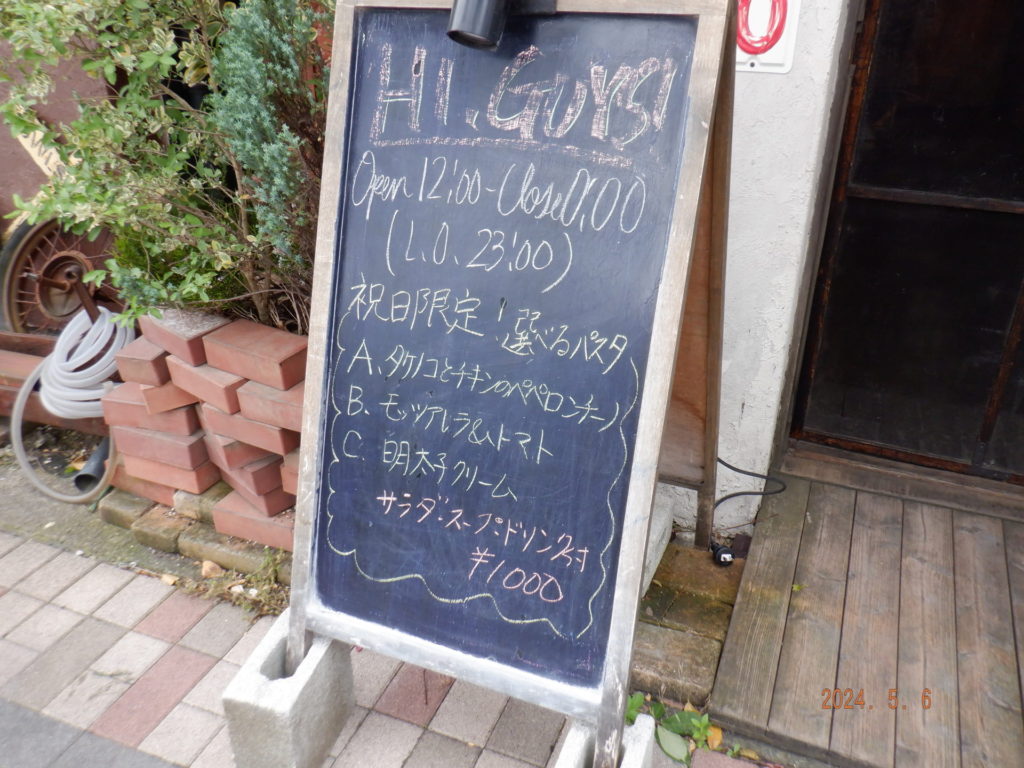 HI, GUYS!
Open 12:00 - Close 0:00
(L.O. 23:00)
祝日限定！選べるパスタ
A. タケノコとチキンのペペロンチーノ
B. モッツアレラ&トマト
C. 明太子クリーム
サラダ・スープ・ドリンク付
¥1000
0
2024. 5. 6